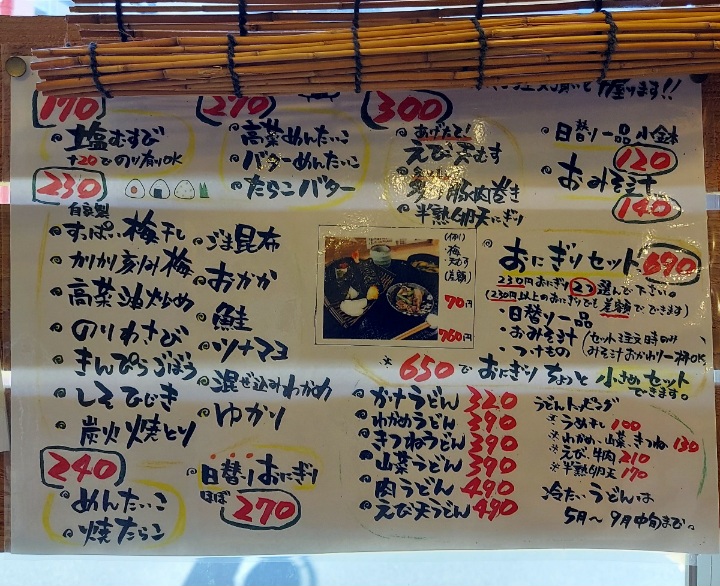 170
塩むすび
+20でのり有りOK
230
自家製
すっぱい梅干し
カリカリ刻み梅
高菜油炒め
のりわさび
きんぴらごぼう
しそひじき
炭火焼とり
ごま昆布
おかか
鮭
ツナマヨ
混ぜ込みわかめ
ゆかり
240
めんたいこ
焼たらこ
日替りおにぎり
ほぼ
270
270
高菜めんたいこ
バターめんたいこ
たらこバター
300
あげたて!
えび天むす
豚肉巻き
半熟卵天にぎり
握ります!!
日替り一品小鉢
120
おみそ汁
140
(例)
梅
天むす
(差額)
70円
760円
おにぎりセット 690
230円おにぎり2コ選んで下さい。
(230円以上のおにぎりでも差額でできます)
・日替り一品
・おみそ汁(セット注文時のみ
みそ汁おかわり一杯OK
・つけもの
※650でおにぎりちょっと小さめセット
できます。
かけうどん 320
わかめうどん 390
きつねうどん 390
山菜うどん 390
肉うどん 490
えび天うどん 490
うどんトッピング
※うめ干し 100
※わかめ、山菜、きつね 130
※えび、牛肉 210
※半熟卵天 170
冷たいうどんは
5月〜9月中旬まで。